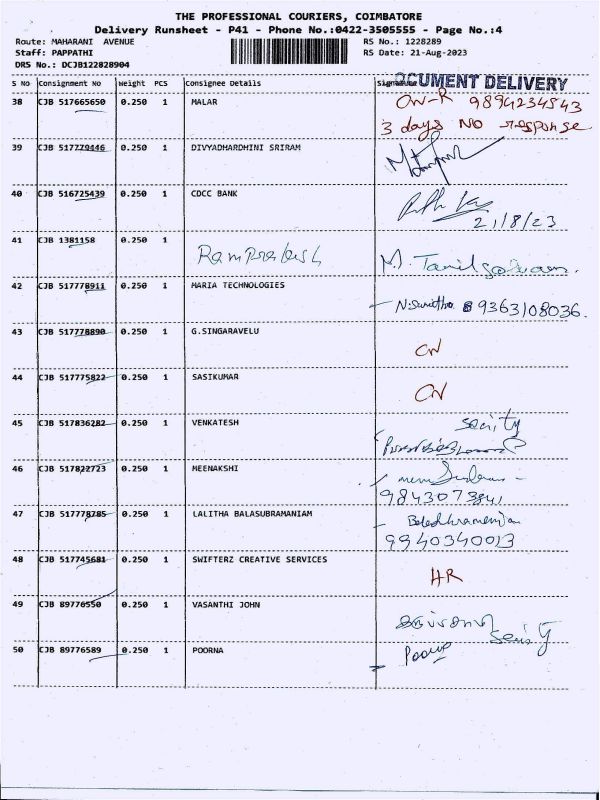 THE PROFESSIONAL COURIERS, COIMBATORE
Delivery Runsheet - P41 - Phone No.:0422-3505555 - Page No.:4
Route: MAHARANI AVENUE RS No.: 1228289
Staff: PAPPATHI RS Date: 21-Aug-2023
DRS No.: DCJB122828904
S No Consignment No Weight PCS Consignee Details DOCUMENT DELIVERY
38 CJB 517665650 0.250 1 MALAR 9894234543
3 days NO response
39 CJB 517779446 0.250 1 DIVYADHARDHINI SRIRAM
40 CJB 516725439 0.250 1 CDCC BANK
21/8/23
41 CJB 1381158 0.250 1 Ramprakash
42 CJB 517778911 0.250 1 MARIA TECHNOLOGIES 9363108036.
43 CJB 517778890 0.250 1 G.SINGARAVELU
44 CJB 517775822 0.250 1 SASIKUMAR
45 CJB 517836282 0.250 1 VENKATESH
46 CJB 517822723 0.250 1 MEENAKSHI
47 CJB 517778785 0.250 1 LALITHA BALASUBRAMANIAM
9940340013
48 CJB 517745681 0.250 1 SWIFTERZ CREATIVE SERVICES
49 CJB 89776550 0.250 1 VASANTHI JOHN
50 CJB 89776589 0.250 1 POORNA